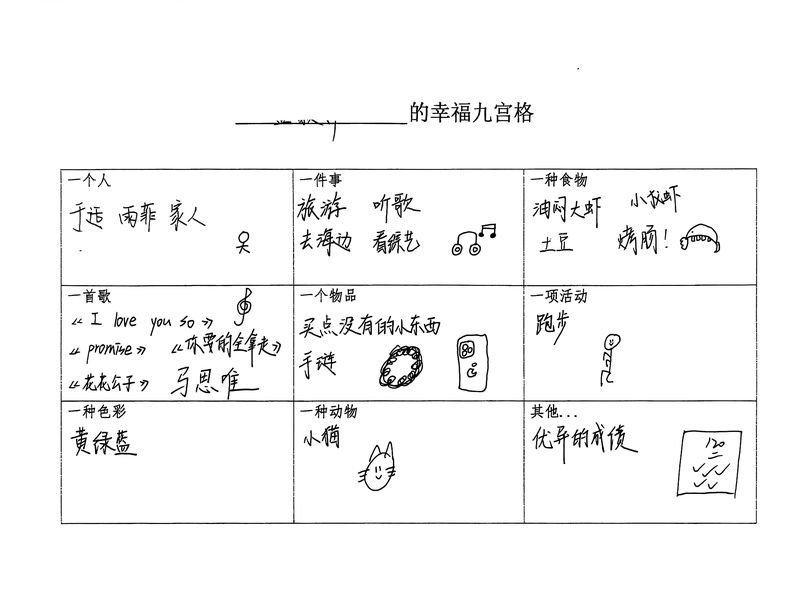 的幸福九宫格
一个人
于适 雨菲 家人
一件事
旅游 听歌
去海边 看综艺
一种食物
油闷大虾 小龙虾
土豆 烤肠!
一首歌
《I love you so》
《promise》 《你要的全拿走》
《花花公子》 马思唯
一个物品
买点没有的小东西
手链
一项活动
跑步
一种色彩
黄绿蓝
一种动物
小猫
其他...
优异的成绩
120